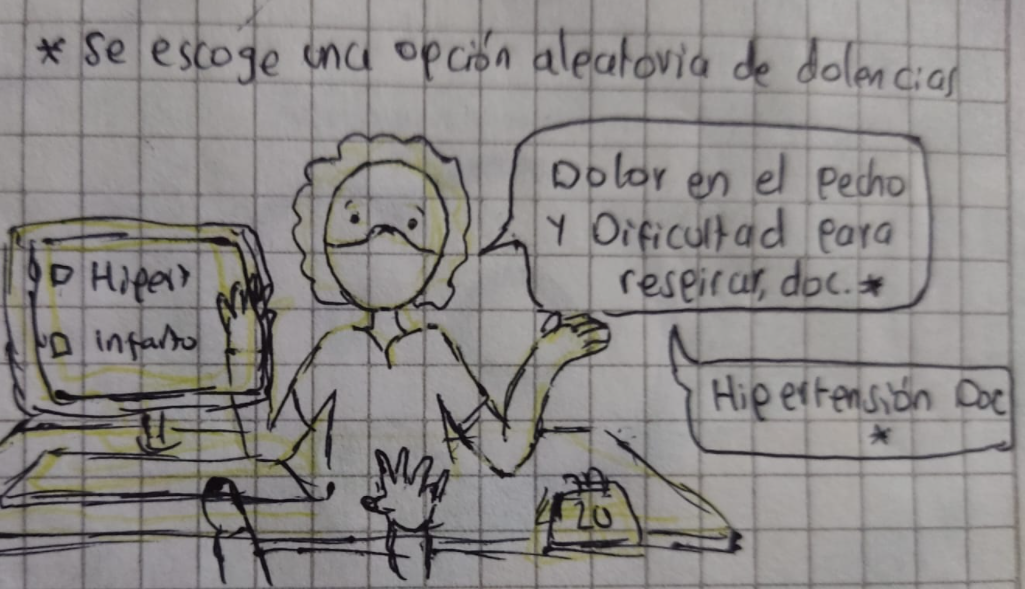 * se escoge una opción aleatoria de dolencias
Dolor en el pecho
Y Dificultad para
respirar, doc.*
Hipertensión Doc
*
Hiper
infarto
20